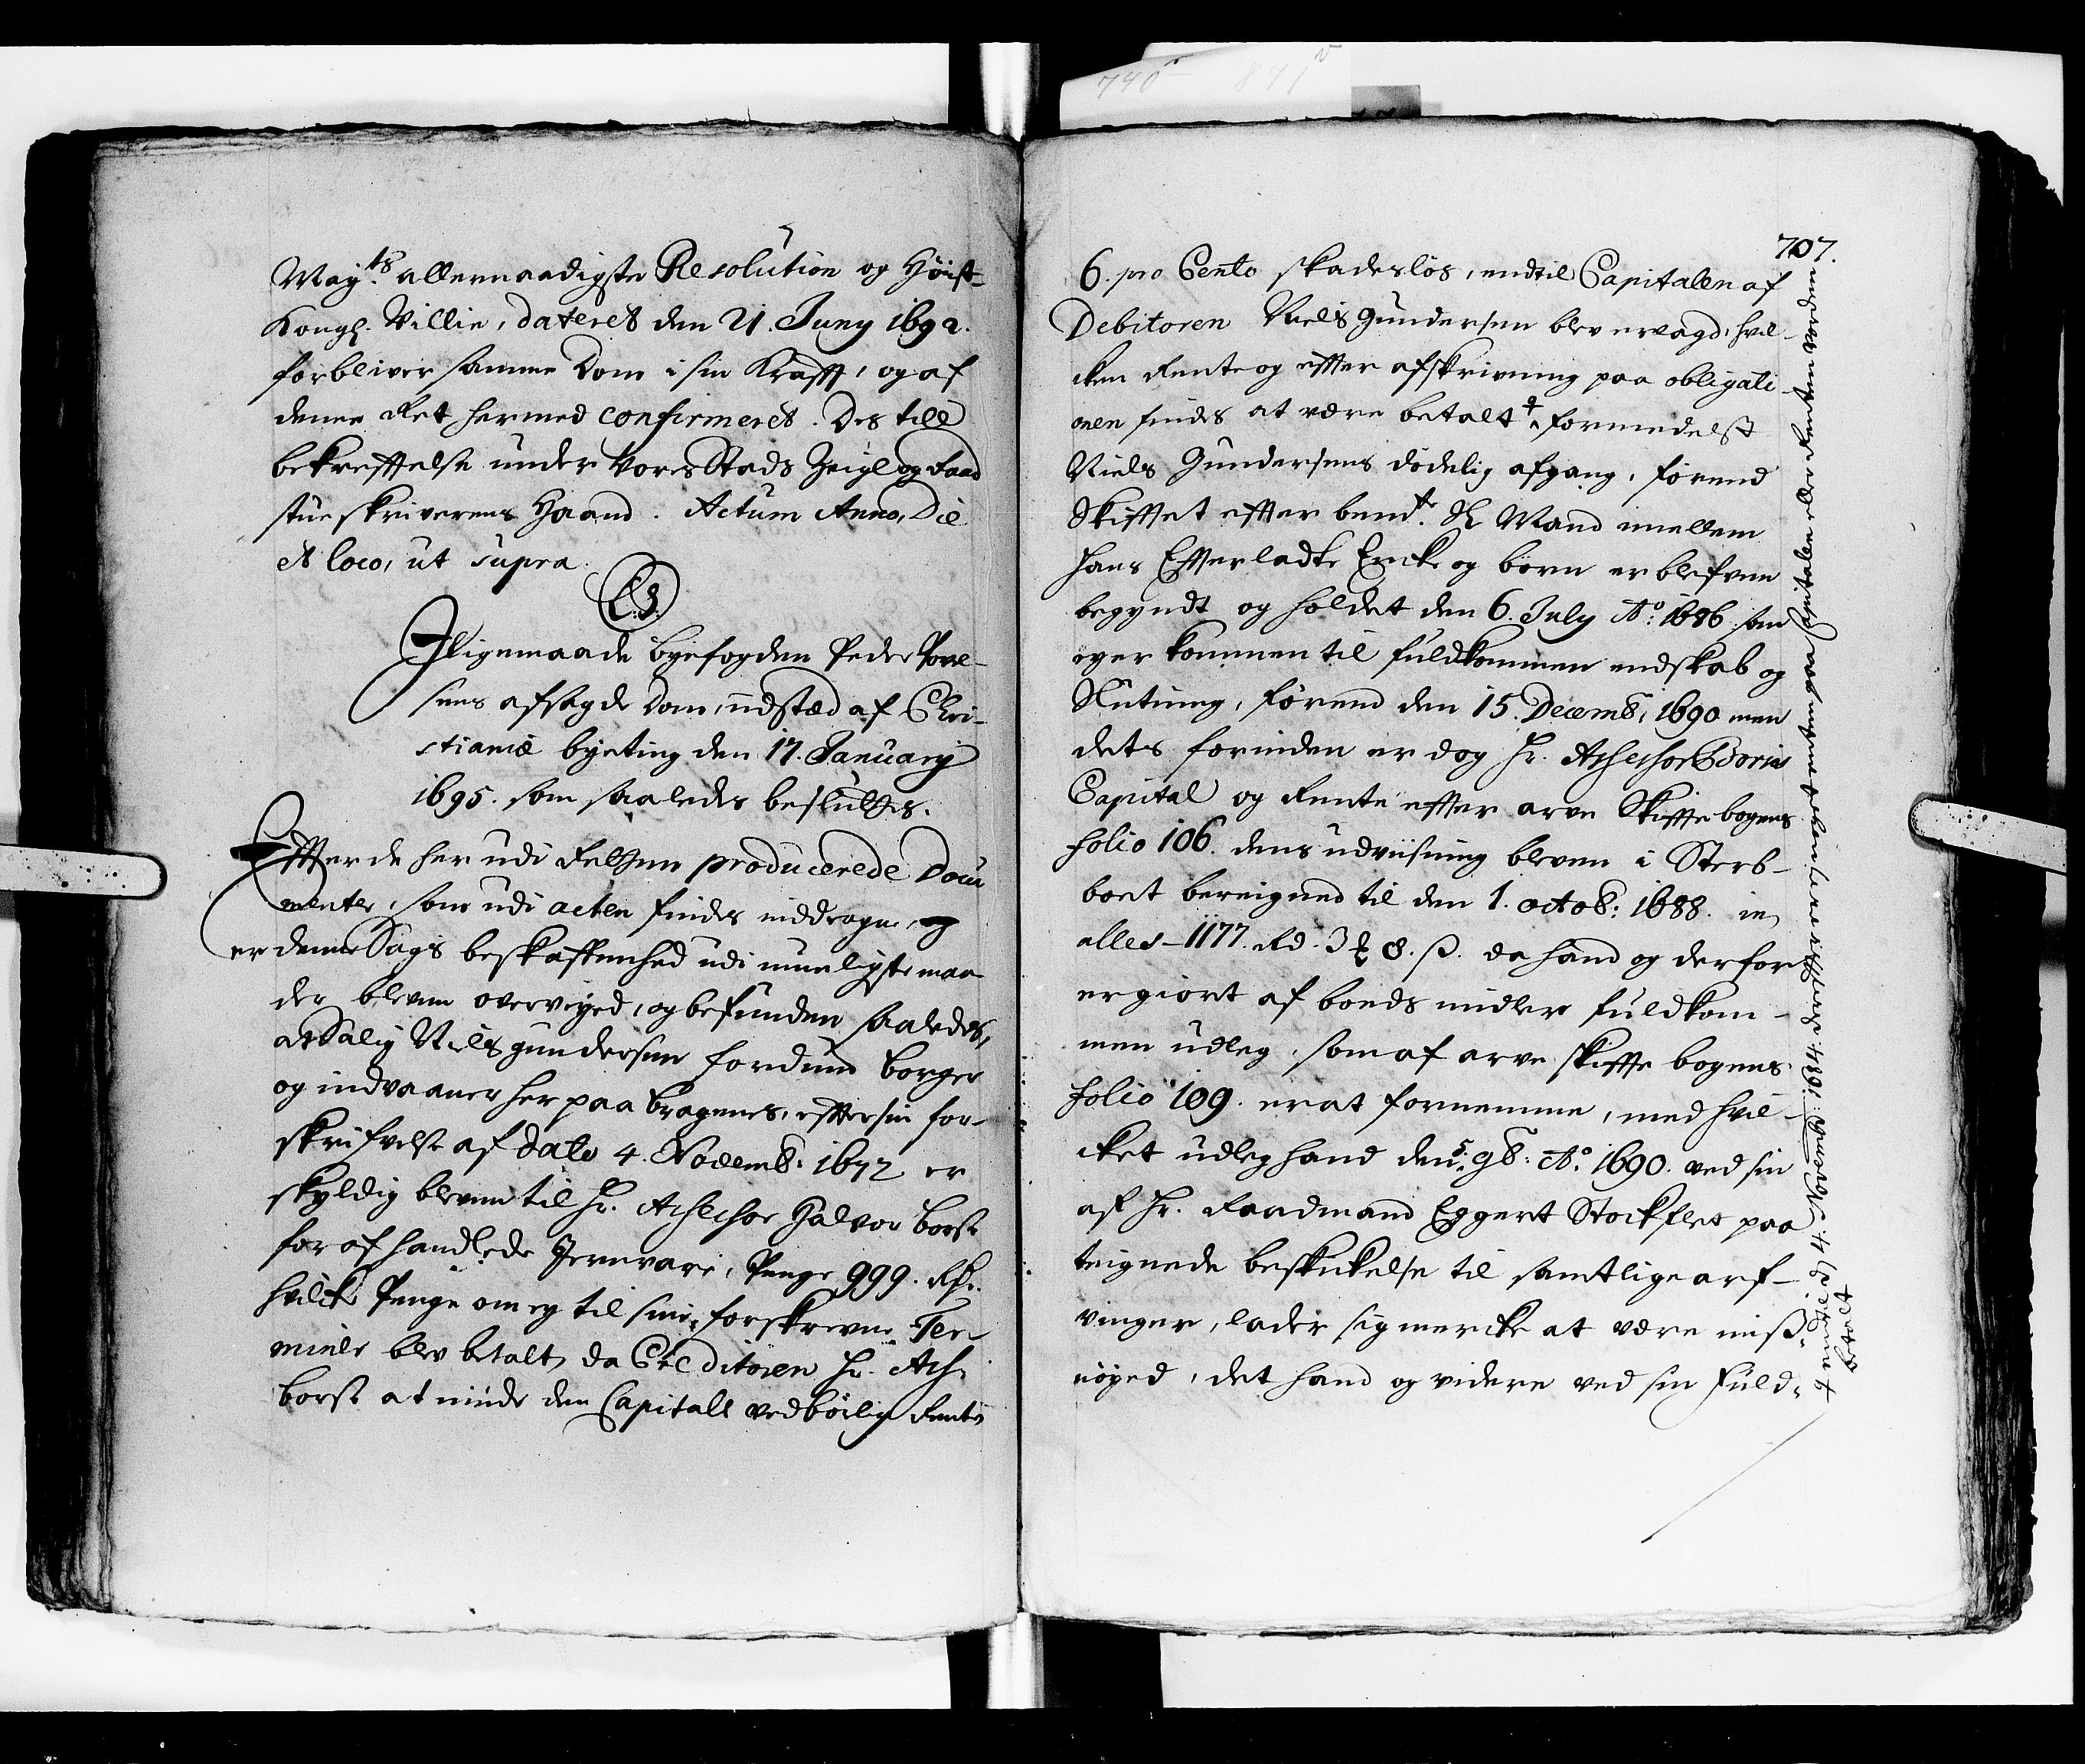 May:ts allernaadigste Resolution og Høist-
Kongl. Villie, dateret den 21. Juny 1692.
forbliver samme Dom i sin Krafft, og af
denne Ret hermed confirmeret. Des till
bekrefftelse under Vores Stads Zeigl og Raad
stue skriverens Haand. Actum Anno, Die
et loco, ut supra.
L:S:
Jligemaade byefogden Peder Povel-
sens afsagde Dom, udsted af Chri-
stianiæ byeting den 17. January
1695. som saaledes besluttes.
Effter de her udi Retten producerede Docu
menter, som udi acten findes inddragne, og
er denne Sags beskaffenhed udi mueligste maa
der bleven overveyed, og befunden saaledes,
at Salig Niels Gundersen fordum borger
og indvaaner her paa bragenes, effter sin for-
skrifvelse af dato 4. Novemb: 1672 er
skyldig bleven til Hr. Assessor Halvor borse
for afhandlede Jernvare, Penge 999. Rdr.
hvilcke Penge om ey til sine forskrevne Ter-
miner blev betalt, da Creditoren Hr. Ass:
borse at nÿde den Capitall ved børlig Rente
707.
6. pro Cento skadesløs, indtil Capitalen af
Debitoren Niels Gundersen blev erlagd, hvil-
cken Rente og effter afskrivning paa obligati-
onen findes at være betalt formedelst
Niels Gundersens dødelig afgang, førend
Skifftet effter bemt. Sl. Mand imellem
hans Effterladte Encke og børn er blefven
begyndt og holdet den 6. July Ao: 1686 som
ey er kommen til fuldkommen endskab og
Slutning, førend den 15. Decemb: 1690 men
dets forinden er dog Hr. Assessor Borses
Capital og Rente effter arve Skifftebogens
folio 106. dens udviisning bleven i Sterb-
boet bereigned til den 1. octob: 1688. in
alles - 1177. Rd. 3 ₰ 8. ß. da hand og derfor
er giort af boeds midler fuldkom-
men udleg, som af arve skiffte bogens
folio 109. er at fornemme, med hvil-
cket udleg hand den 5. 9b: Ao. 1690. ved sin
af Hr. Raadmand Eggert Stockflet paa
teignede beskickelse til samtlige arf-
vinger, lader sig mercke at være miss-
nøyed, det hand og videre ved sin fuld-
indtil 4. Novemb: 1684. effter
betalt